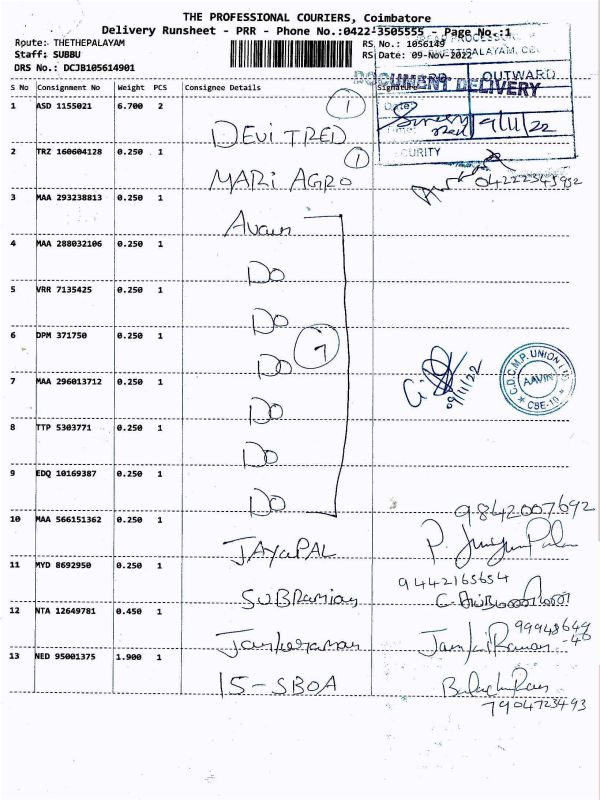 THE PROFESSIONAL COURIERS, Coimbatore
Delivery Runsheet - PRR - Phone No.:0422-3505555 - Page No.:1
Route: THETHEPALAYAM
RS No.: 1056149
Staff: SUBBU
RS Date: 09-Nov-2022
DRS No.: DCJB105614901
DOCUMENT DELIVERY
OUTWARD
S No Consignment No Weight PCS Consignee Details Signature
Date
9/11/22
1 ASD 1155021 6.700 2 DEVI TRED 1
SECURITY
2 TRZ 160604128 0.250 1 MARI AGRO 1
04222345952
3 MAA 293238813 0.250 1 Avain
4 MAA 288032106 0.250 1 DO
5 VRR 7135425 0.250 1 DO
6 DPM 371750 0.250 1 DO 7
09/11/22
C.D.C.M.P. UNION LTD
AAVIN
CBE-10
7 MAA 296013712 0.250 1 DO
8 TTP 5303771 0.250 1 DO
9 EDQ 10169387 0.250 1 DO
9842007692
10 MAA 566151362 0.250 1 JAYaPAL
9442165654
11 MYD 8692950 0.250 1 SUBRamian
99948649
-40
12 NTA 12649781 0.450 1 Jankiraman Janki Raman
13 NED 95001375 1.900 1 15-SBOA
7904723493